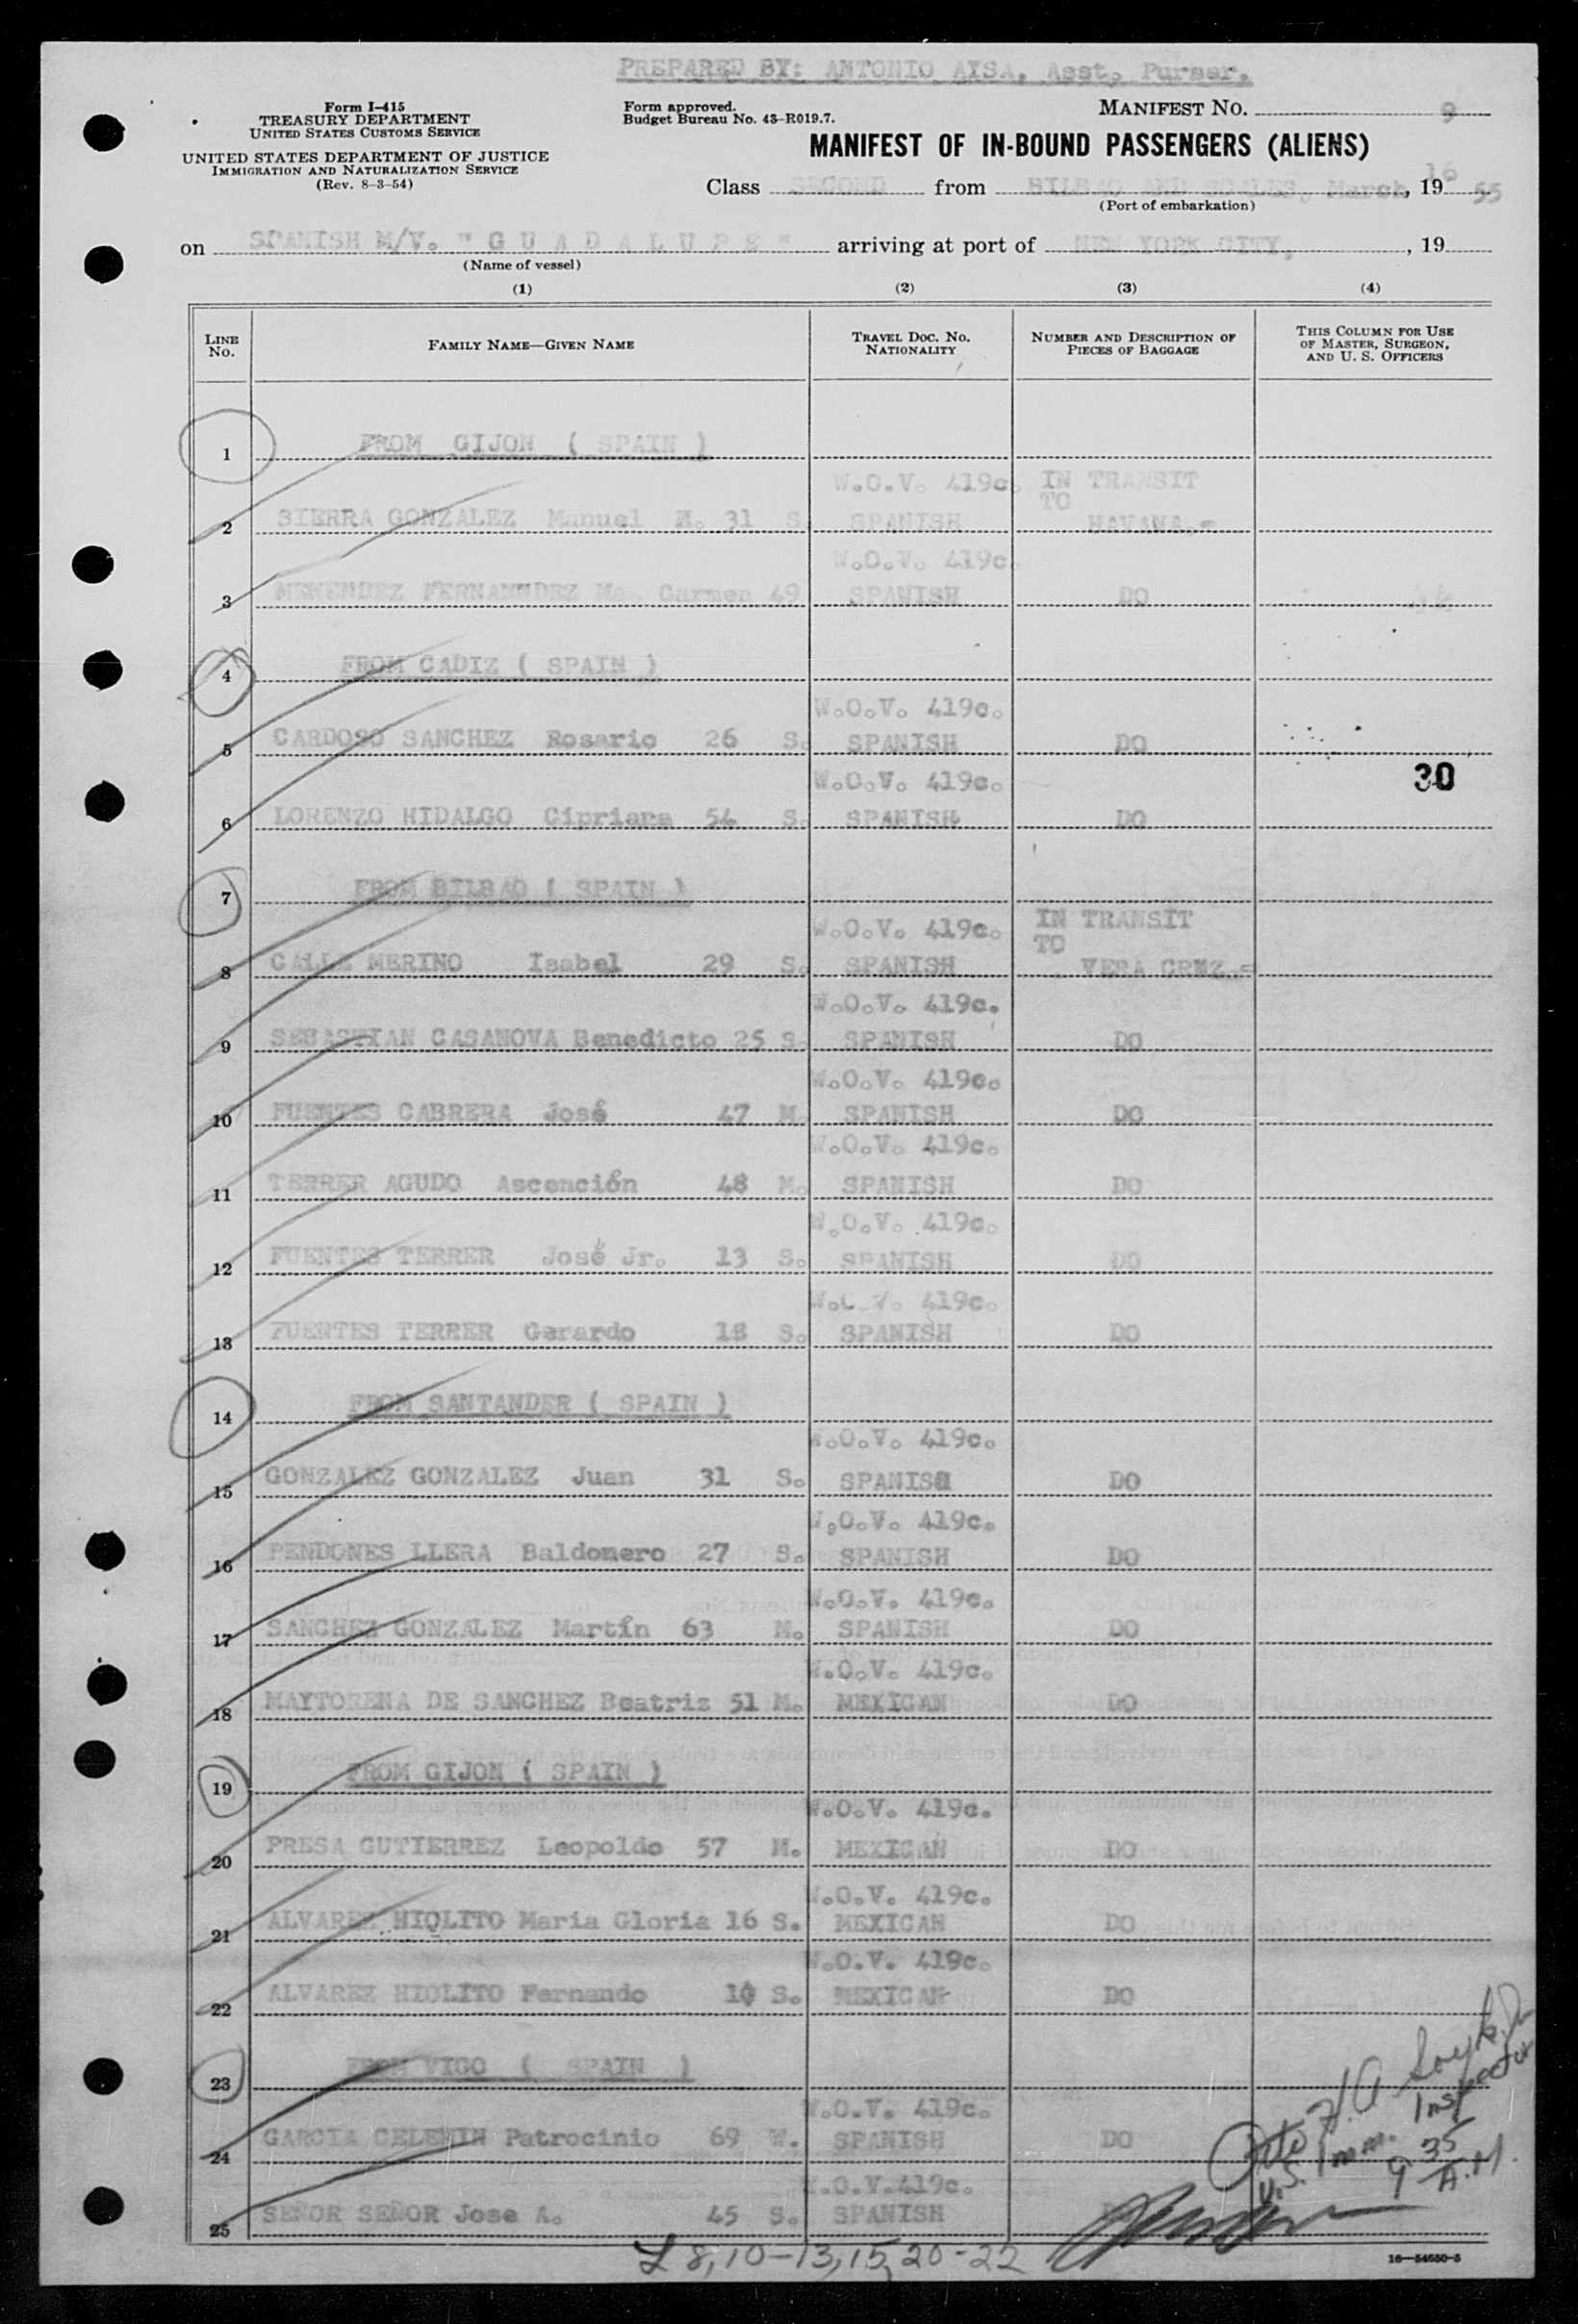 PREPARED BY: ANTONIO AYSA, Asst. Purser.
Form I-415
TREASURY DEPARTMENT
UNITED STATES CUSTOMS SERVICE
UNITED STATES DEPARTMENT OF JUSTICE
IMMIGRATION AND NATURALIZATION SERVICE
(Rev. 8-3-54)
Form approved.
Budget Bureau No. 43-R019.7.
MANIFEST NO. 9
MANIFEST OF IN-BOUND PASSENGERS (ALIENS)
Class SECOND from BILBAO AND SCALES, March 16, 19 55
(Port of embarkation)
on SPANISH M/V. "G U A D A L U P E" arriving at port of NEW YORK CITY, , 19
(Name of vessel)
(1) (2) (3) (4)
LINE NO. FAMILY NAME—GIVEN NAME TRAVEL DOC. NO. NATIONALITY NUMBER AND DESCRIPTION OF PIECES OF BAGGAGE THIS COLUMN FOR USE OF MASTER, SURGEON, AND U. S. OFFICERS
1 FROM GIJON ( SPAIN )
W.O.V. 419c. IN TRANSIT TO
2 SIERRA GONZALEZ Manuel M. 31 S. SPANISH HAVANA.=
W.O.V. 419c.
3 MENENDEZ FERNANNDEZ Ma. Carmen 49 SPANISH DO
4 FROM CADIZ ( SPAIN )
W.O.V. 419c.
5 CARDOSO SANCHEZ Rosario 26 S. SPANISH DO
W.O.V. 419c. 30
6 LORENZO HIDALGO Cipriana 54 S. SPANISH DO
7 FROM BILBAO ( SPAIN )
W.O.V. 419c. IN TRANSIT TO
8 CALLE MERINO Isabel 29 S. SPANISH VERA CRUZ.=
W.O.V. 419c.
9 SEBASTIAN CASANOVA Benedicto 25 S. SPANISH DO
W.O.V. 419c.
10 FUENTES CABRERA José 47 M. SPANISH DO
W.O.V. 419c.
11 TERRER AGUDO Ascención 48 M. SPANISH DO
W.O.V. 419c.
12 FUENTES TERRER José Jr. 13 S. SPANISH DO
W.O.V. 419c.
13 FUENTES TERRER Gerardo 18 S. SPANISH DO
14 FROM SANTANDER ( SPAIN )
W.O.V. 419c.
15 GONZALEZ GONZALEZ Juan 31 S. SPANISH DO
W.O.V. 419c.
16 PENDONES LLERA Baldomero 27 S. SPANISH DO
W.O.V. 419c.
17 SANCHEZ GONZALEZ Martín 63 M. SPANISH DO
W.O.V. 419c.
18 MAYTORENA DE SANCHEZ Beatriz 51 M. MEXICAN DO
19 FROM GIJON ( SPAIN )
W.O.V. 419c.
20 PRESA GUTIERREZ Leopoldo 57 M. MEXICAN DO
W.O.V. 419c.
21 ALVAREZ HIOLITO Maria Gloria 16 S. MEXICAN DO
W.O.V. 419c.
22 ALVAREZ HIOLITO Fernando 10 S. MEXICAN DO
23 FROM VIGO ( SPAIN )
W.O.V. 419c.
24 GARCIA CELEMIN Patrocinio 69 W. SPANISH DO
W.O.V.419c.
25 SEÑOR SEÑOR Jose A. 45 S. SPANISH
U.S. Imm. Inspector
9 35 A.M.
8, 10-13, 15, 20-22
16—54650-5